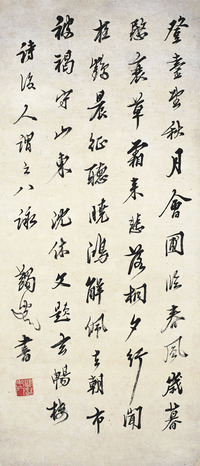 登臺望秋月會圃臨春風歲暮
愍衰草霜來悲落桐夕行聞
夜鶴晨征聽曉鴻解佩去朝市
被褐守山東沈休文題玄暢樓
詩後人謂之八詠 書